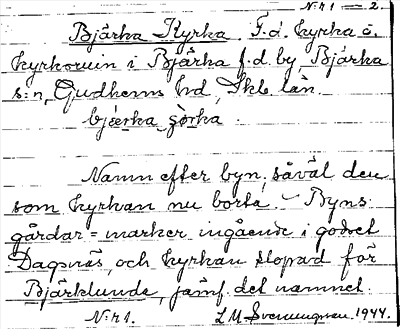 N:r 1 — 2.
Bjärka Kyrka. F.d. kyrka o.
kyrkoruin i Bjärka f.d. by, Bjärka
s:n, Gudhems hd, Skb. län.
bjærka çörka.
Namn efter byn, såväl den
som kyrkan nu borta. – Byns
gårdar = marker ingående i godset
Dagsnäs, och kyrkan slopad för
Bjärklunda, jämf. det namnet.
N:r 1. L M Svenungsson. 1944.